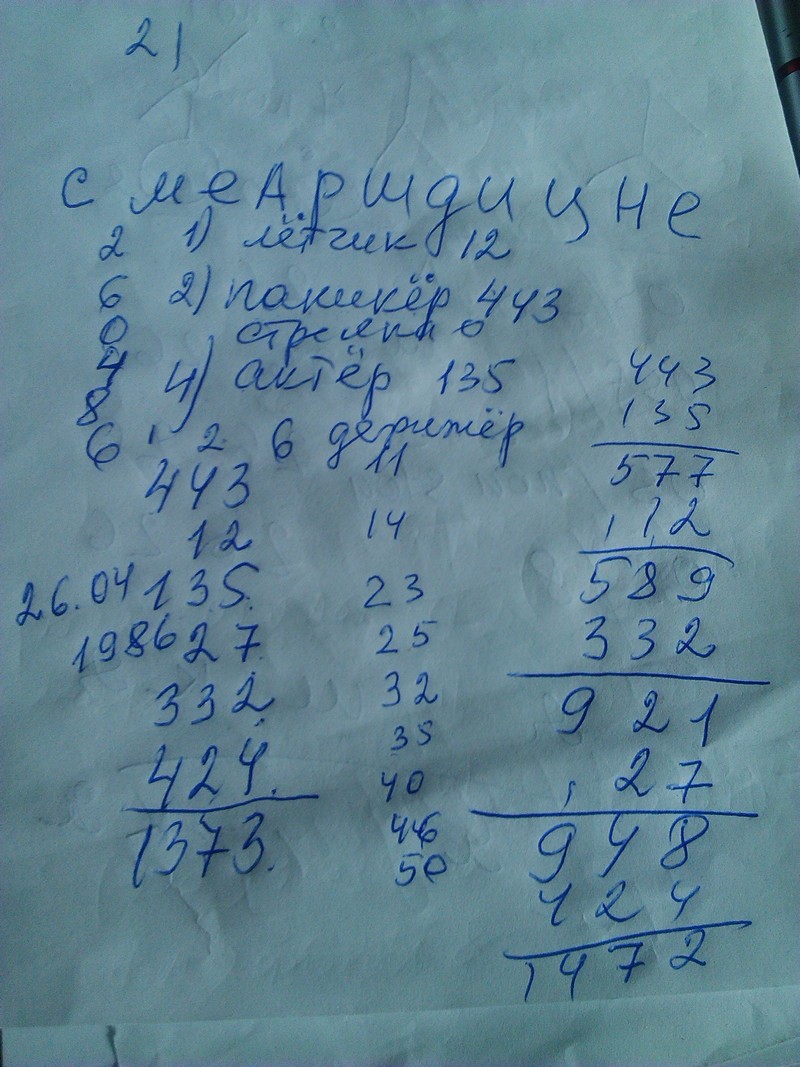 21
с меАршдицне
2 1) лётчик 12
6 2) паникёр 443
0 стрелки 0
4 4) актёр 135
8
6 1 2 6 дежижёр
443 11
12 14
26.04 135 23
1986 27 25
332 32
35
424 40
1373 46
50
443
135
577
112
589
332
921
27
948
424
1472